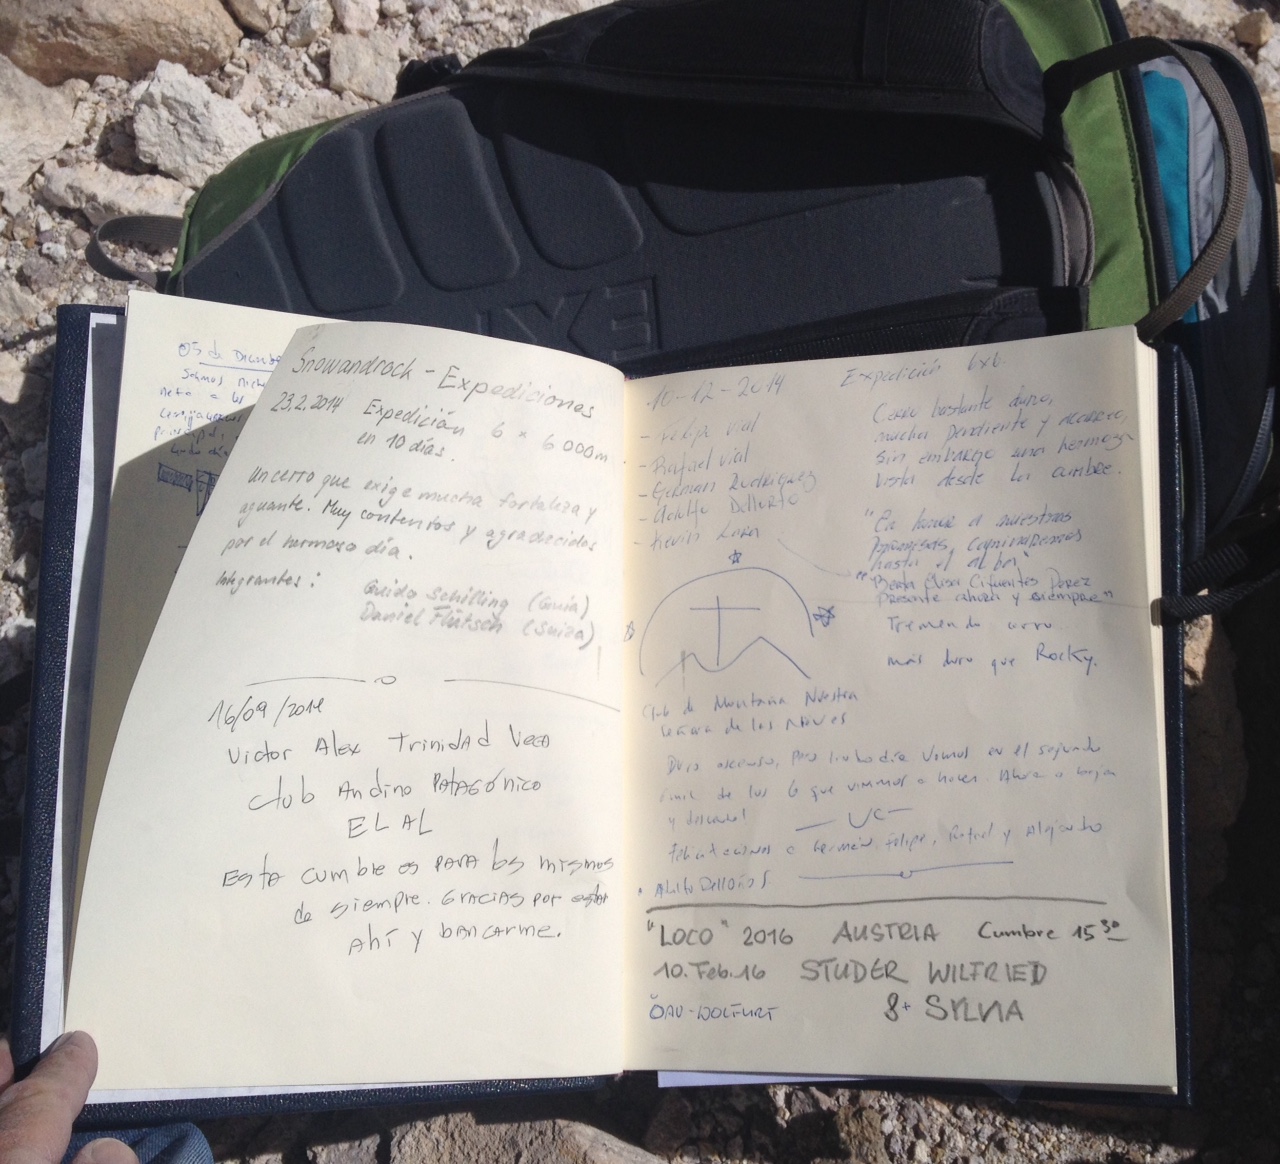 05 de
Somos
Snowandrock - Expediciones
23.2.2014 Expedición 6 x 6000m
en 10 días.
Un cerro que exige mucha fortaleza y
aguante. Muy contentos y agradecidos
por el hermoso día.
Integrantes:
Guido Schilling (Guía)
Daniel Flütsch (Suiza)
16/09/2014
Victor Alex Trinidad Vega
Club Andino Patagónico
ELAL
Esta cumbre es para los mismos
de siempre. Gracias por estar
Ahí y bancarme.
10-12-2014 Expedición 6x6
- Felipe Vial
- Rafael Vial
- German Rodriguez
- Adolfo Dell'Orto
- Kevin
Cerro bastante duro,
mucha pendiente y acarreo,
sin embargo una hermosa
vista desde la cumbre.
"En honor a nuestras
promesas, caminaremos
hasta el
"Berta Elisa Cifuentes Perez
presente ahora y siempre"
Tremendo cerro
más duro que Rocky.
Club de Montaña Nuestra
Señora de las Nieves
Duro ascenso, pero lindo día. Vamos en el segundo
de los 6 que vinimos a hacer. Ahora a bajar
y descansar
UC
Felicitaciones a Germán, Felipe, Rafael y Alejandro
"LOCO" 2016 AUSTRIA Cumbre 15 30
10.Feb.16 STUDER WILFRIED
&+ SYLVIA
ÖAV-WOLFURT